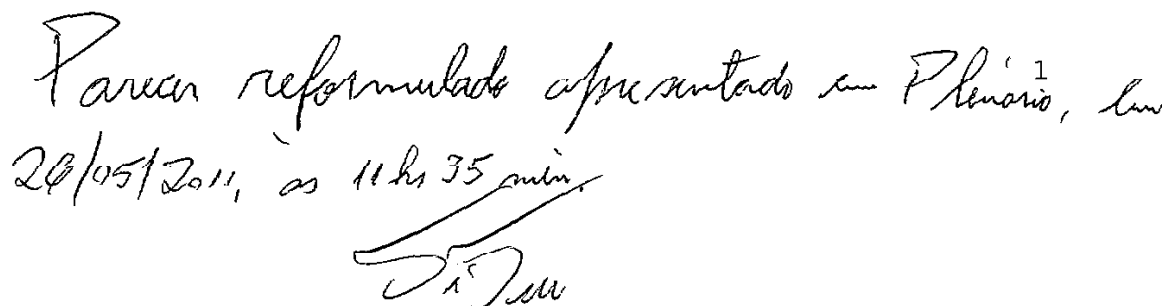 Parecer reformulado apresentado em Plenário, em
1
24/05/2011, às 11hs 35 min.